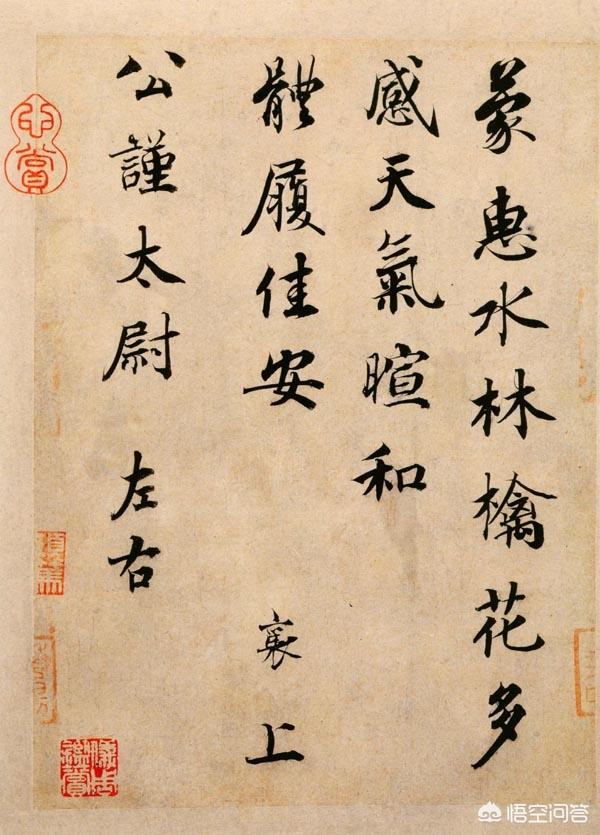 蒙惠水林檎花多
感天氣暄和
體履佳安　襄　上
公謹太尉　左右
悟空问答